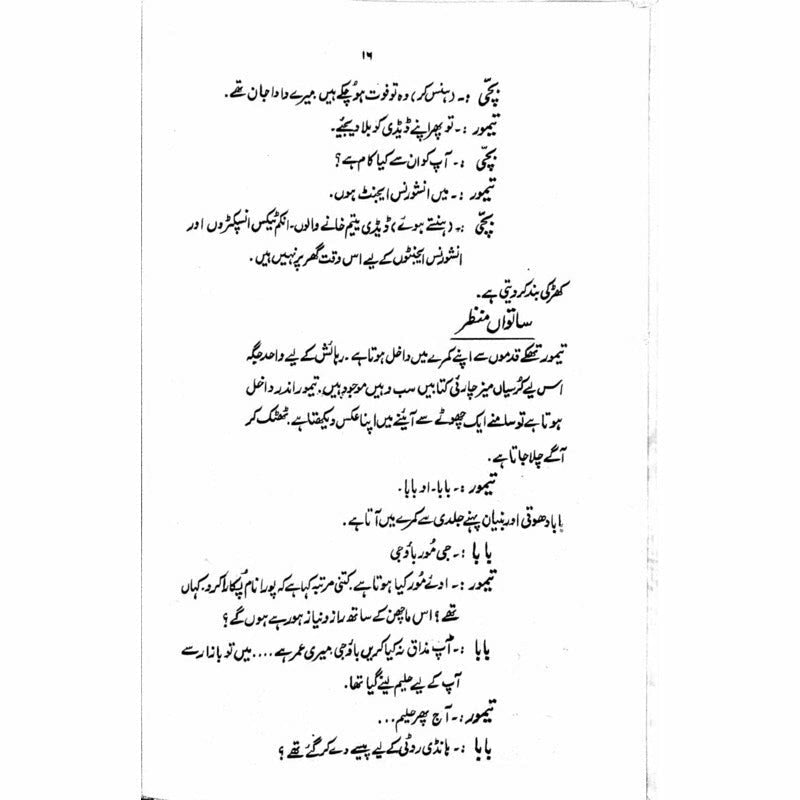 ۱۶
بچّی :۔ (ہنس کر) وہ تو فوت ہو چکے ہیں میرے دادا جان تھے۔
تیمور :۔ تو پھر اپنے ڈیڈی کو بلا دیجیٔے۔
بچّی :۔ آپ کو ان سے کیا کام ہے؟
تیمور :۔ میں انشورنس ایجنٹ ہوں۔
بچّی :۔ (ہنستے ہوئے) ڈیڈی یتیم خانے والوں۔ انکم ٹیکس انسپکٹروں اور
انشورنس ایجنٹوں کے لیے اس وقت گھر پر نہیں ہیں۔
کھڑکی بند کر دیتی ہے۔
ساتواں منظر
تیمور تھکے قدموں سے اپنے کمرے میں داخل ہوتا ہے۔ رہائش کے لیے واحد جگہ
اس لیے کُرسیاں میز چارپائی کتابیں سب وہیں موجود ہیں۔ تیمور اندر داخل
ہوتا ہے تو سامنے ایک چھوٹے سے آئینے میں اپنا عکس دیکھتا ہے۔ ٹھٹک کر
آگے چلا جاتا ہے۔
تیمور :۔ بابا۔ او بابا۔
بابا دھوتی اور بنیان پہنے جلدی سے کمرے میں آتا ہے۔
بابا :۔ جی مُور باؤجی
تیمور :۔ اوئے مُور کیا ہوتا ہے۔ کتنی مرتبہ کہا ہے کہ پورا نام پُکارا کرو۔ کہاں
تھے؟ اس ماچھن کے ساتھ راز و نیاز ہو رہے ہوں گے؟
بابا :۔ آپ مذاق نہ کیا کریں باؤجی میری عمر ہے .... میں تو بازار سے
آپ کے لیے حلیم لینے گیا تھا۔
تیمور :۔ آج پھر حلیم ...
بابا :۔ ہانڈی روٹی کے لیے پیسے دے کر گئے تھے؟